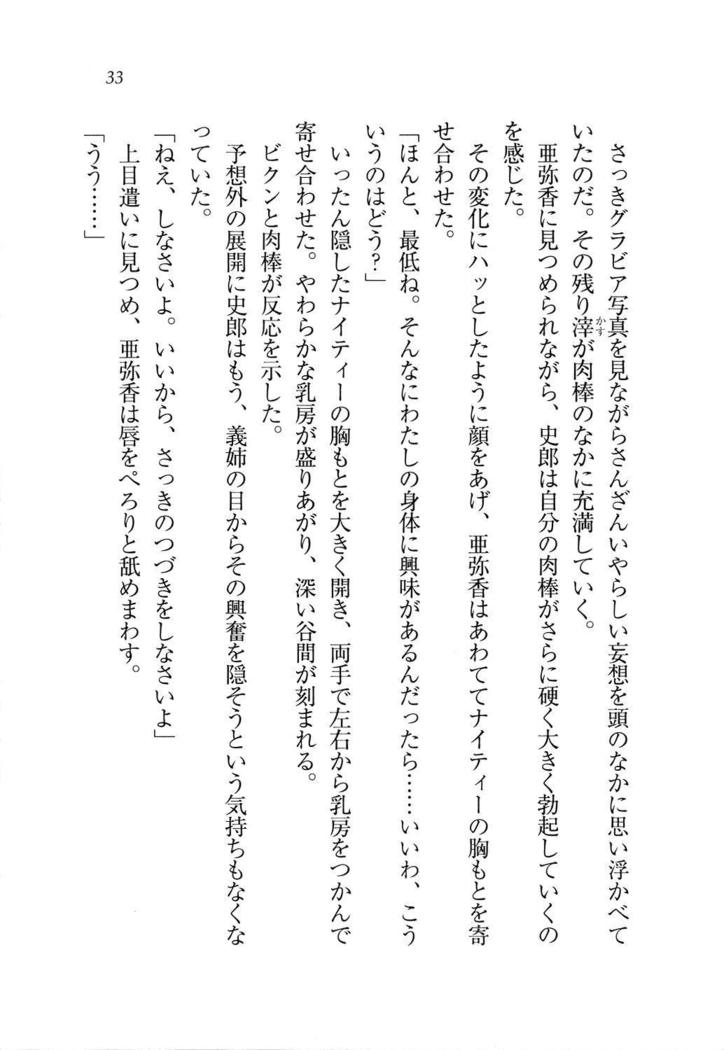 33
さっきグラビア写真を見ながらさんざんいやらしい妄想を頭のなかに思い浮かべて
いたのだ。その残り滓が肉棒のなかに充満していく。
かす
亜弥香に見つめられながら、史郎は自分の肉棒がさらに硬く大きく勃起していくの
を感じた。
その変化にハッとしたように顔をあげ、亜弥香はあわててナイティーの胸もとを寄
せ合わせた。
「ほんと、最低ね。そんなにわたしの身体に興味があるんだったら……いいわ、こう
いうのはどう?」
いったん隠したナイティーの胸もとを大きく開き、両手で左右から乳房をつかんで
寄せ合わせた。やわらかな乳房が盛りあがり、深い谷間が刻まれる。
ビクンと肉棒が反応を示した。
予想外の展開に史郎はもう、義姉の目からその興奮を隠そうという気持ちもなくな
っていた。
「ねえ、しなさいよ。いいから、さっきのつづきをしなさいよ」
上目遣いに見つめ、亜弥香は唇をぺろりと舐めまわす。
「うう……」